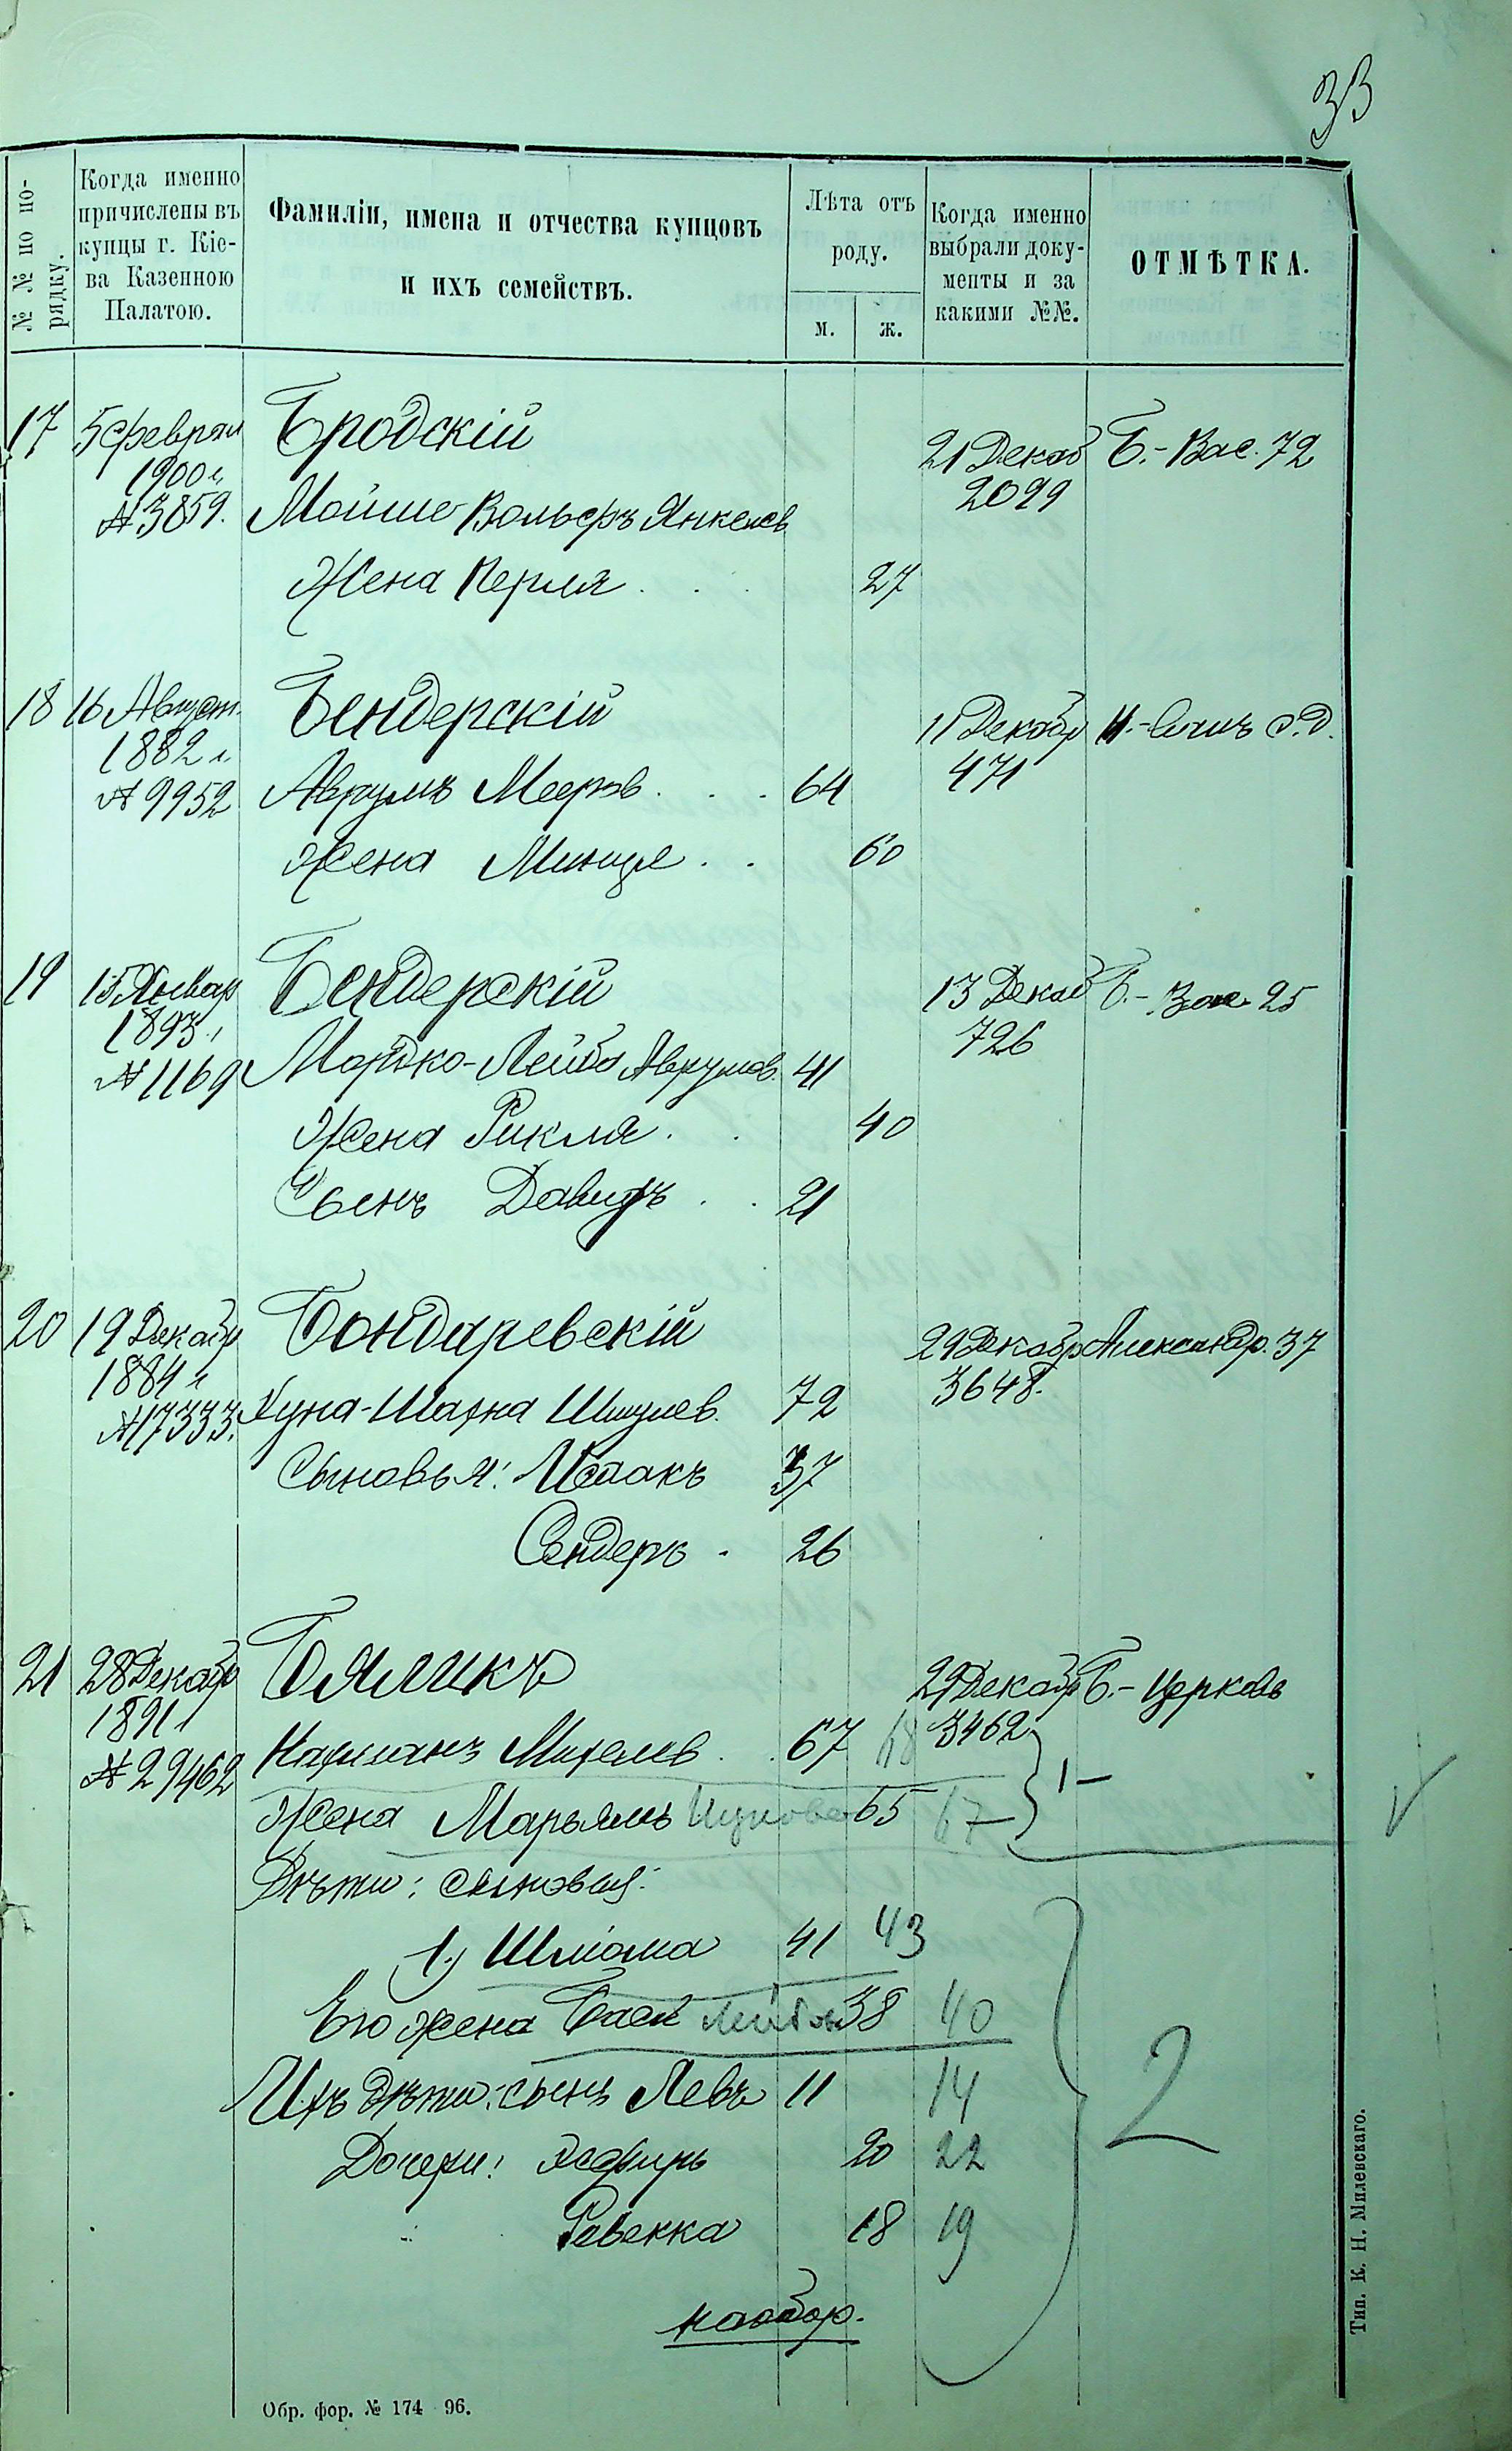 33
№ № по по-
рядку.
Когда именно
причислены въ
купцы г. Кіе-
ва Казенною
Палатою.
Фамиліи, имена и отчества купцовъ
и ихъ семействъ.
Лѣта отъ
роду.
м. ж.
Когда именно
выбрали доку-
менты и за
какими №№.
ОТМѢТКА.
17 5 феврал Бродскій 21 Декаб Б.-Вас. 72
1900 г. 2099
№ 3859. Мойше Вольфъ Янкелев
Жена Перля . . . 27
18 16 Август. Бендерскій 11 Декабр с.д.
1882 г. 471
№ 9952 Аврумъ Мееров . . . 64
Жена Минця . . 60
19 15 Январ Бендерскій 13 Декаб Б.- 25
1893 г. 726
№ 1169 Мордко-Лейба Аврумов. 41
Жена Рикля . . 40
Сынъ Давидъ . . 21
20 19 Декабр Бондаревскій 29 Декабр Александр. 37
1884 г. 3648.
№ 17333. Хуна-Шахна Шмулев. 72
Сыновья: Исаакъ 37
Сендеръ . 26
21 28 Декабр Бяликъ 29 Декабр Б.-Церковь
1891 г. 3462
№ 29462 Нахманъ Михелев . . 67 68
1-
Жена Марьямъ Ицкова 65 67
Дѣти: сыновья:
1.) Шліома 41 43
Его жена Бася 38 40
Ихъ дѣти: сынъ Левъ 11 14
2
Дочери: Эсфирь 20 22
Ревекка 18 19
наобор.
Обр. фор. № 174 96.
Тип. К. Н. Милевскаго.